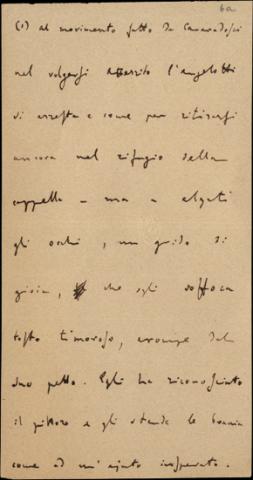 6a
(1) al movimento fatto da Cavaradossi
nel volgersi atterrito l'angelotti
si arresta e come per ritirarsi
ancora nel rifugio della
cappella – ma – alzati
gli occhi, un grido di
gioia, che egli soffoca
tosto timoroso, erompe dal
suo petto. Egli ha riconosciuto
il pittore e gli stende le braccia
come ad un'ajuto insperato.